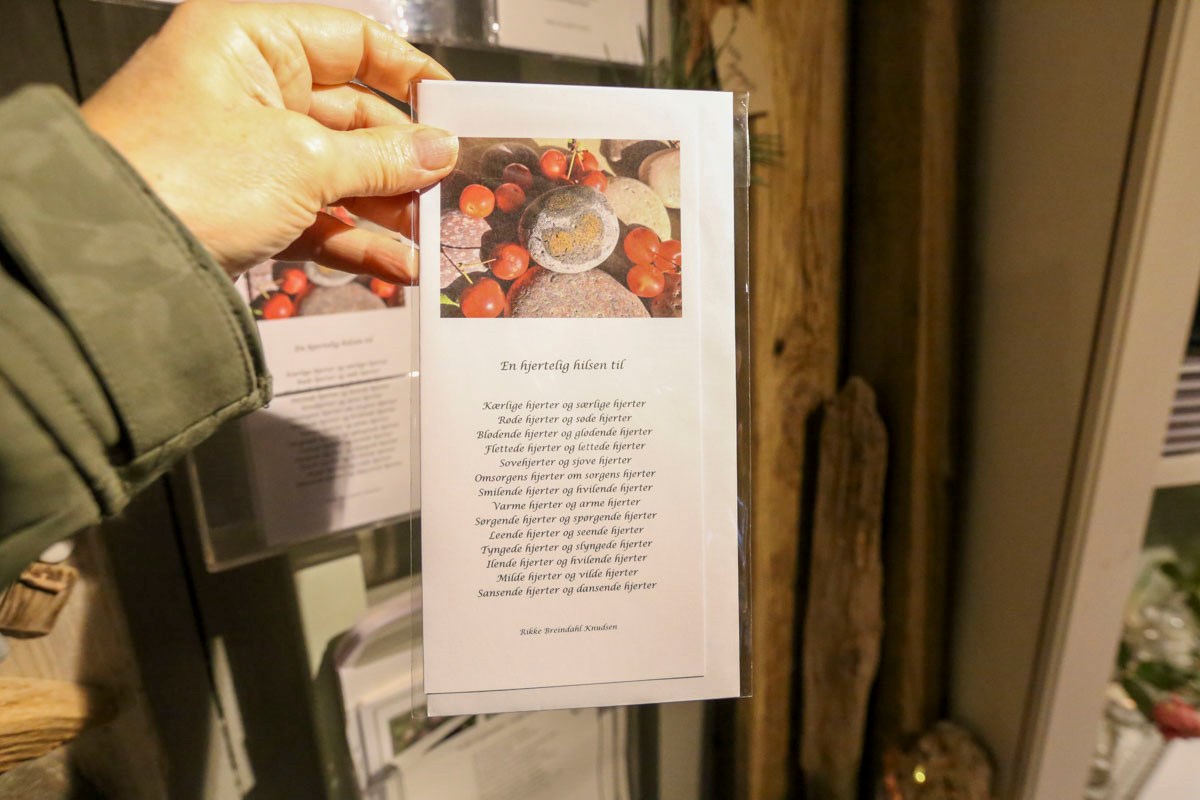 En hjertelig hilsen til
Kærlige hjerter og særlige hjerter
Røde hjerter og søde hjerter
Blødende hjerter og glødende hjerter
Flettede hjerter og lettede hjerter
Sovehjerter og sjove hjerter
Omsorgens hjerter om sorgens hjerter
Smilende hjerter og hvilende hjerter
Varme hjerter og arme hjerter
Sørgende hjerter og spørgende hjerter
Leende hjerter og seende hjerter
Tyngede hjerter og slyngede hjerter
Ilende hjerter og hvilende hjerter
Milde hjerter og vilde hjerter
Sansende hjerter og dansende hjerter
Rikke Breindahl Knudsen
En hjertelig hilsen til